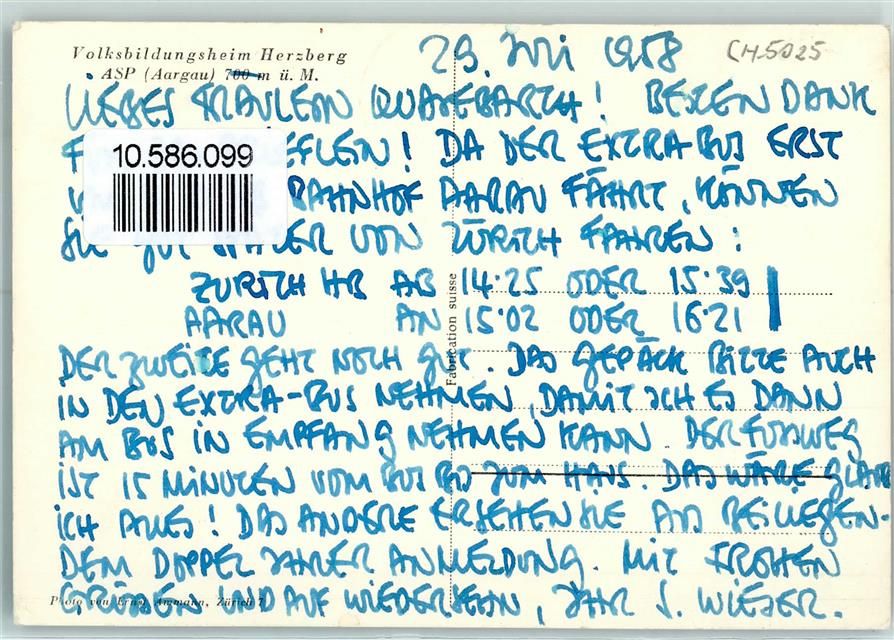 Volksbildungsheim Herzberg
ASP (Aargau) 700 m ü. M.
29. JULI 1958
CH-5025
LIEBES FRÄULEIN! BESTEN DANK
10.586.099
DA DER EXTRA-BUS ERST
BAHNHOF AARAU FÄHRT, KÖNNEN
SIE GUT SPÄTER VON ZÜRICH FAHREN:
ZÜRICH HB AB 14.25 ODER 15.39
AARAU AN 15.02 ODER 16.21
DER ZWEITE GEHT NOCH GUT. DAS GEPÄCK BITTE AUCH
IN DEN EXTRA-BUS NEHMEN, DAMIT ICH ES DANN
AM BUS IN EMPFANG NEHMEN KANN. DER FUSSWEG
IST 15 MINUTEN VOM BUS ZUM HAUS. DAS WÄRE GLAUB
ICH ALLES! DAS ANDERE ERSEHEN SIE AUS BEILIEGEN-
DEM DOPPEL IHRER ANMELDUNG. MIT FROHEN
GRÜSSEN UND AUF WIEDERSEHN, IHR S. WIESER.
Fabrication suisse
Photo von Ernst Ammann, Zürich 7